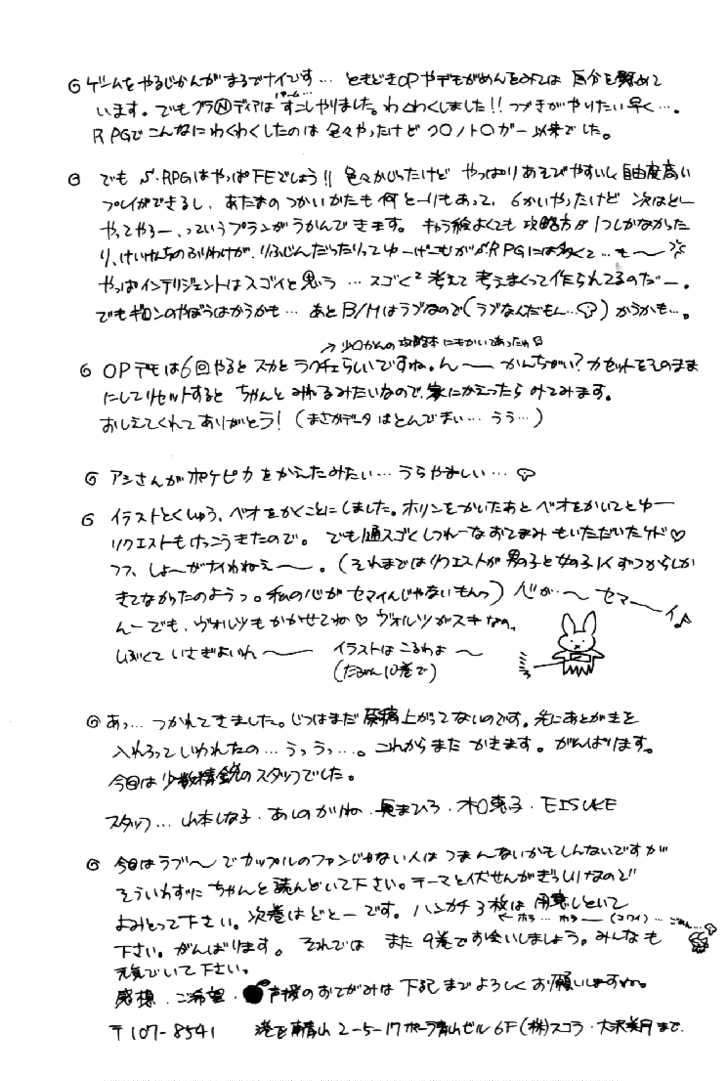 ◎ ゲームをやるじかんがまるでナイです… ときどきOPやデモがめんをみては 自分を慰めて
います。でもグラ(N)ディアは すこしやりました。わくわくしました!! つづきがやりたい早く…。
RPGで こんなにわくわくしたのは 色々やったけど クロノトリガー以来でした。
◎ でも S・RPGはやっぱFEでしょう!! 色々かじったけど やっぱりあそびやすいし 自由度高い
プレイができるし、あたまの つかいかたも 何とーりもあって、6かいやったけど 次はこーし
やってやろー、っていうプランが うかんで きます。 キャラ絵よくても 攻略方が 1つしかなかった
り、けいけんちのふりわけが、りふじんだったりってゆーげーむがS・RPGには多くて… も〜
やっぱインテリジェントはスゴイと思う … スゴく2 考えて 考えまくって作られてるのだー。
でもギロンのやぼうはかうかも… あと B/Mはラブなので(ラブなんだもん…) かうかも…。
→ 少口かんの攻略本にもかいてあったヨ
◎ OPデモは6回やると スカとラクチェらしいですね。ん〜 かんちがい? カセットをそのまま
にしてリセットすると ちゃんと みれるみたいなので、家にかえったら みてみます。
おしえてくれて ありがとう! (まさかデータ はとんでまい… うぅ…)
◎ アシさんが ポケピカ をかったみたい… うらやましい…
◎ イラストとくしゅう、ベオをかくことにしました。ホリンをかいたあと ベオをかいてとゆー
リクエストも けっこうきたので。 でも1通スゴくしつれーなおてがみ もいただいたケド♡
フフ、しょーがナイわねぇ〜。(それまではリクエストが 男の子と女の子1人ずつからしか
きてなかったのようっ。私の心が セマイんじゃないもんっ) 心が…〜 セマ〜イ♪
んー でも、ヴォルツも かかせてね♡ ヴォルツがスキなの。
しぶくて いさぎよいわ〜 イラストは こるわよ〜
(たぶん10巻で)
◎ あっ… つかれてきました。じつはまだ 原稿上がってないのです。先にあとがきを
入れろっていわれたの… うっうっ…。これからまた かきます。がんばります。
今回は 少数精鋭のスタッフでした。
スタッフ… 山本しな子・あしのがりね・長まひろ・木口恵子・EISUKE
◎ 今回はラブ〜 でカップルのファンじゃない人は つまんないかもしんないですが
そういわずに ちゃんと 読んどいて下さい。テーマと伏せんがぎっしりなので
よみとって下さい。次巻はどとーです。ハンカチ3枚は 用意しといて
←ホラ… ホラー(コワイ)… ごめん…
下さい。がんばります。 それでは また 9巻でお会いしましょう。みんなも
元気でいて下さい。
感想、ご希望・声援のおてがみは 下記までよろしくお願いしますね。
〒107-8541 港区南青山 2-5-17 ポーラ青山ビル 6F (株)スコラ・大沢美月まで.